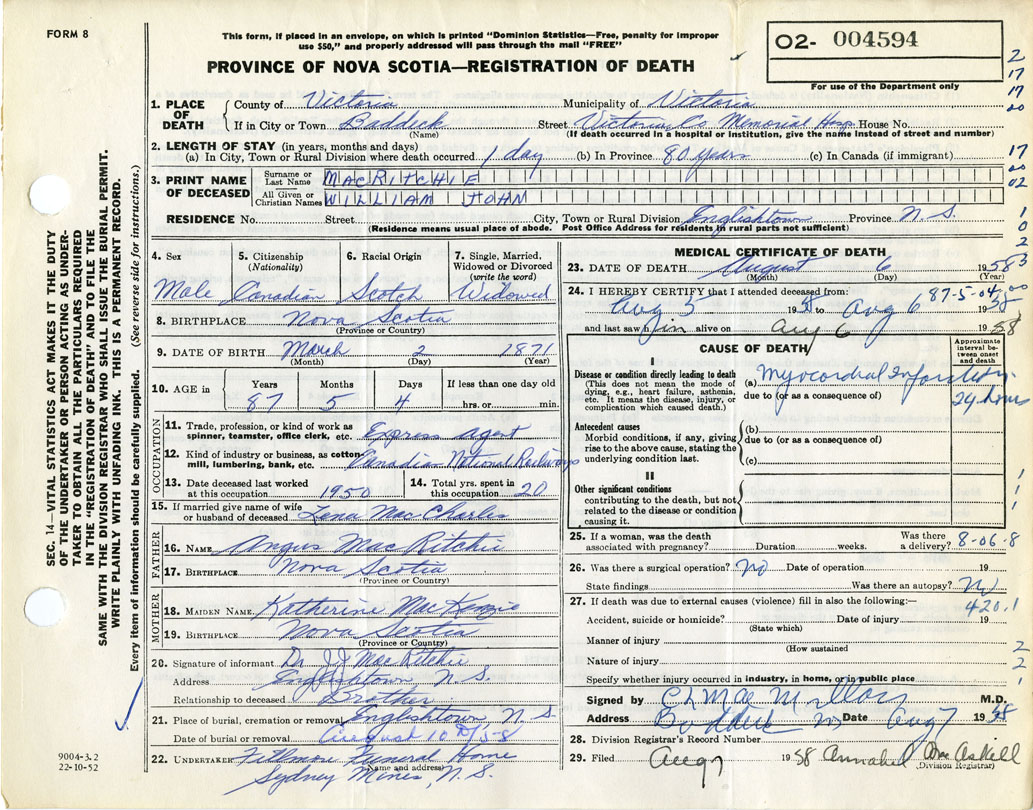 FORM 8
This form, if placed in an envelope, on which is printed "Dominion Statistics—Free, penalty for improper
use $50," and properly addressed will pass through the mail "FREE"
O2- 004594
For use of the Department only
PROVINCE OF NOVA SCOTIA—REGISTRATION OF DEATH
2
17
17
00
1. PLACE OF DEATH { County of Victoria Municipality of Victoria
If in City or Town Baddeck Street Victoria Co Memorial Hosp. House No.
(Name) (If death occurred in a hospital or institution, give the name instead of street and number)
2. LENGTH OF STAY (in years, months and days)
(a) In City, Town or Rural Division where death occurred 1 day (b) In Province 80 years (c) In Canada (if immigrant)
17
00
02
3. PRINT NAME OF DECEASED
Surname or Last Name MACRITCHIE
All Given or Christian Names WILLIAM JOHN
RESIDENCE No. Street City, Town or Rural Division Englishtown Province N.S.
(Residence means usual place of abode. Post Office Address for residents in rural parts not sufficient)
1
0
2
3
4. Sex Male
5. Citizenship (Nationality) Canadian
6. Racial Origin Scotch
7. Single, Married, Widowed or Divorced (write the word) Widowed
8. BIRTHPLACE Nova Scotia
(Province or Country)
9. DATE OF BIRTH March 2 1871
(Month) (Day) (Year)
10. AGE in Years 87 Months 5 Days 4 If less than one day old hrs. or min.
OCCUPATION
11. Trade, profession, or kind of work as spinner, teamster, office clerk, etc. Express agent
12. Kind of industry or business, as cotton-mill, lumbering, bank, etc. Canadian National Railways
13. Date deceased last worked at this occupation 1950
14. Total yrs. spent in this occupation 20
15. If married give name of wife or husband of deceased Lena MacCharles
FATHER
16. NAME Angus MacRitchie
17. BIRTHPLACE Nova Scotia
(Province or Country)
MOTHER
18. MAIDEN NAME Katherine MacKenzie
19. BIRTHPLACE Nova Scotia
(Province or Country)
20. Signature of informant Dr J.J. MacRitchie
Address Englishtown N.S.
Relationship to deceased Brother
21. Place of burial, cremation or removal Englishtown N.S
Date of burial or removal August 10th/58
22. UNDERTAKER Fillmore Funeral Home
(Name and address)
Sydney Mines, N.S.
MEDICAL CERTIFICATE OF DEATH
23. DATE OF DEATH August 6 1958
(Month) (Day) (Year)
24. I HEREBY CERTIFY that I attended deceased from: 87-5-04.00
Aug 5 1958 to Aug 6 1958
and last saw him alive on Aug 6 1958
CAUSE OF DEATH
Approximate interval between onset and death
I
Disease or condition directly leading to death
(This does not mean the mode of dying, e.g., heart failure, asthenia, etc. It means the disease, injury, or complication which caused death.)
(a) Myocordial Infarction
due to (or as a consequence of)
24 hours
Antecedent causes
Morbid conditions, if any, giving rise to the above cause, stating the underlying condition last.
(b)
due to (or as a consequence of)
(c)
II
Other significant conditions
contributing to the death, but not related to the disease or condition causing it.
1
1
1
25. If a woman, was the death associated with pregnancy? Duration weeks. Was there a delivery? 8-06-8
26. Was there a surgical operation? No Date of operation 19
State findings Was there an autopsy? No
27. If death was due to external causes (violence) fill in also the following:— 420.1
Accident, suicide or homicide? Date of injury 19
(State which)
Manner of injury
(How sustained
Nature of injury
2
2
1
Specify whether injury occurred in industry, in home, or in public place
Signed by C L MacMillan M.D.
Address Baddeck NS Date Aug 7 1958
28. Division Registrar's Record Number
29. Filed Aug 7 1958 Annabel MacAskill
(Division Registrar)
SEC. 14—VITAL STATISTICS ACT MAKES IT THE DUTY
OF THE UNDERTAKER OR PERSON ACTING AS UNDER-
TAKER TO OBTAIN ALL THE PARTICULARS REQUIRED
IN THE "REGISTRATION OF DEATH" AND TO FILE THE
SAME WITH THE DIVISION REGISTRAR WHO SHALL ISSUE THE BURIAL PERMIT.
WRITE PLAINLY WITH UNFADING INK. THIS IS A PERMANENT RECORD.
Every item of information should be carefully supplied. (See reverse side for instructions.)
9004-3.2
22-10-52